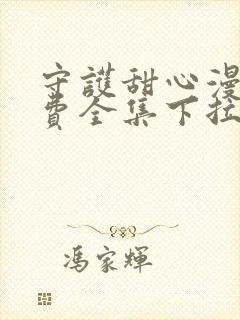 守護甜心漫
費全集下拉
馮家輝